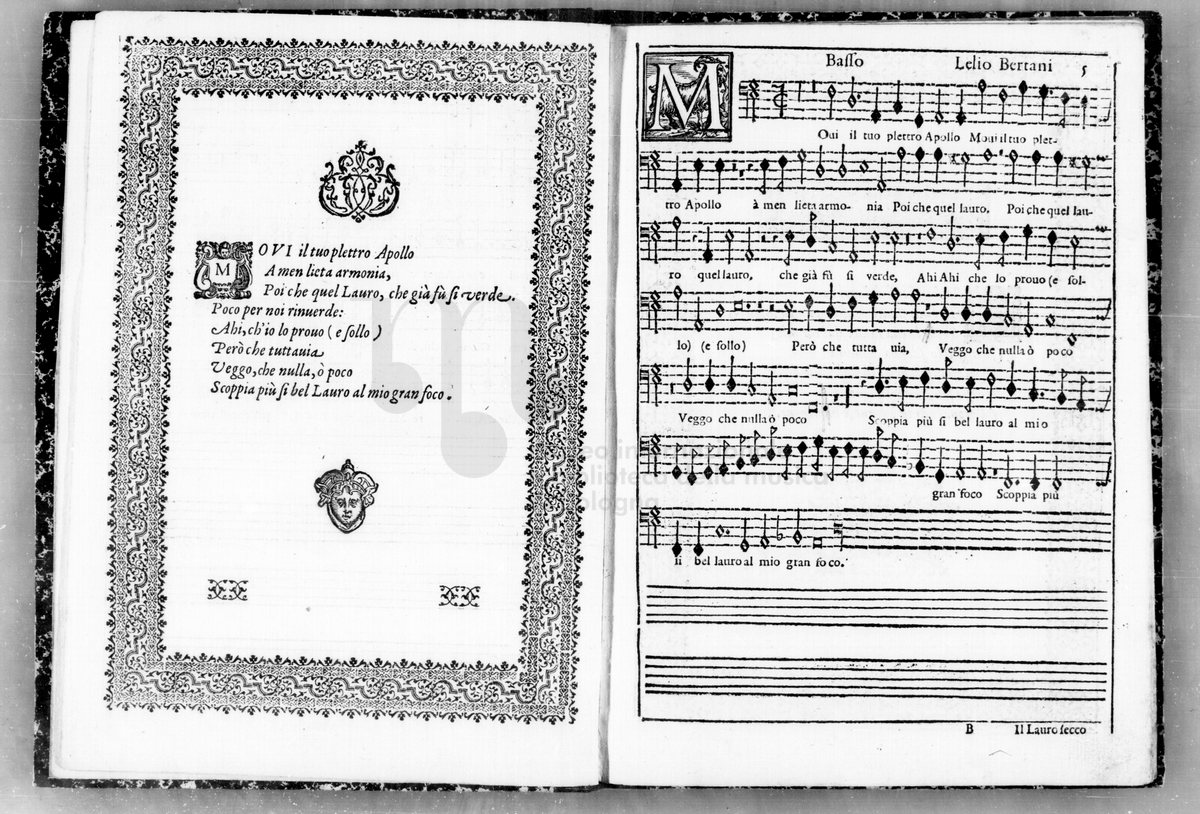 MOVI il tuo plettro Apollo
A men lieta armonia,
Poi che quel Lauro, che già fù ſi verde.
Poco per noi rinuerde:
Ahi, ch'io lo prouo (e ſollo)
Però che tuttauia
Veggo, che nulla, ò poco
Scoppia più ſi bel Lauro al mio gran foco.
Baſſo Lelio Bertani 5
MOui il tuo plettro Apollo Moui il tuo plet-
tro Apollo à men lieta armo- nia Poi che quel lauro, Poi che quel lau-
ro quel lauro, che già fù ſi verde, Ahi Ahi che lo prouo (e ſol-
lo) (e ſollo) Però che tutta uia, Veggo che nulla ò poco
Veggo che nulla ò poco Scoppia più ſi bel lauro al mio
gran foco Scoppia più
ſi bel lauro al mio gran foco.
B Il Lauro ſecco
museo internazionale
biblioteca della musica
bologna